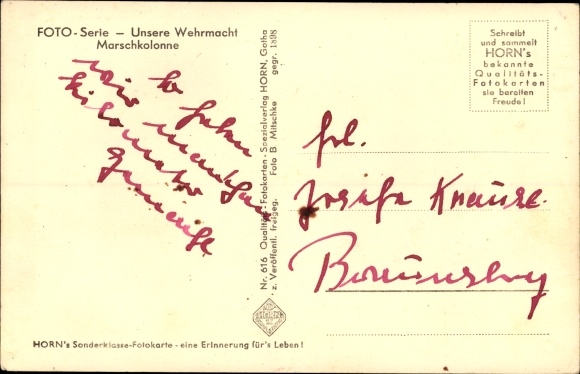 FOTO-Serie — Unsere Wehrmacht
Marschkolonne
So haben
wir manchen
Kilometer
gemeistert
Nr. 616 Qualitäts-Fotokarten-Spezialverlag HORN, Gotha gegr. 1898
z. Veröffentl. freigeg. Foto B Mitschke
Schreibt
und sammelt
HORN's
bekannte
Qualitäts-
Fotokarten
sie bereiten
Freude!
Frl.
Josefa Knause.
HORN's Sonderklasse-Fotokarte - eine Erinnerung für's Leben!